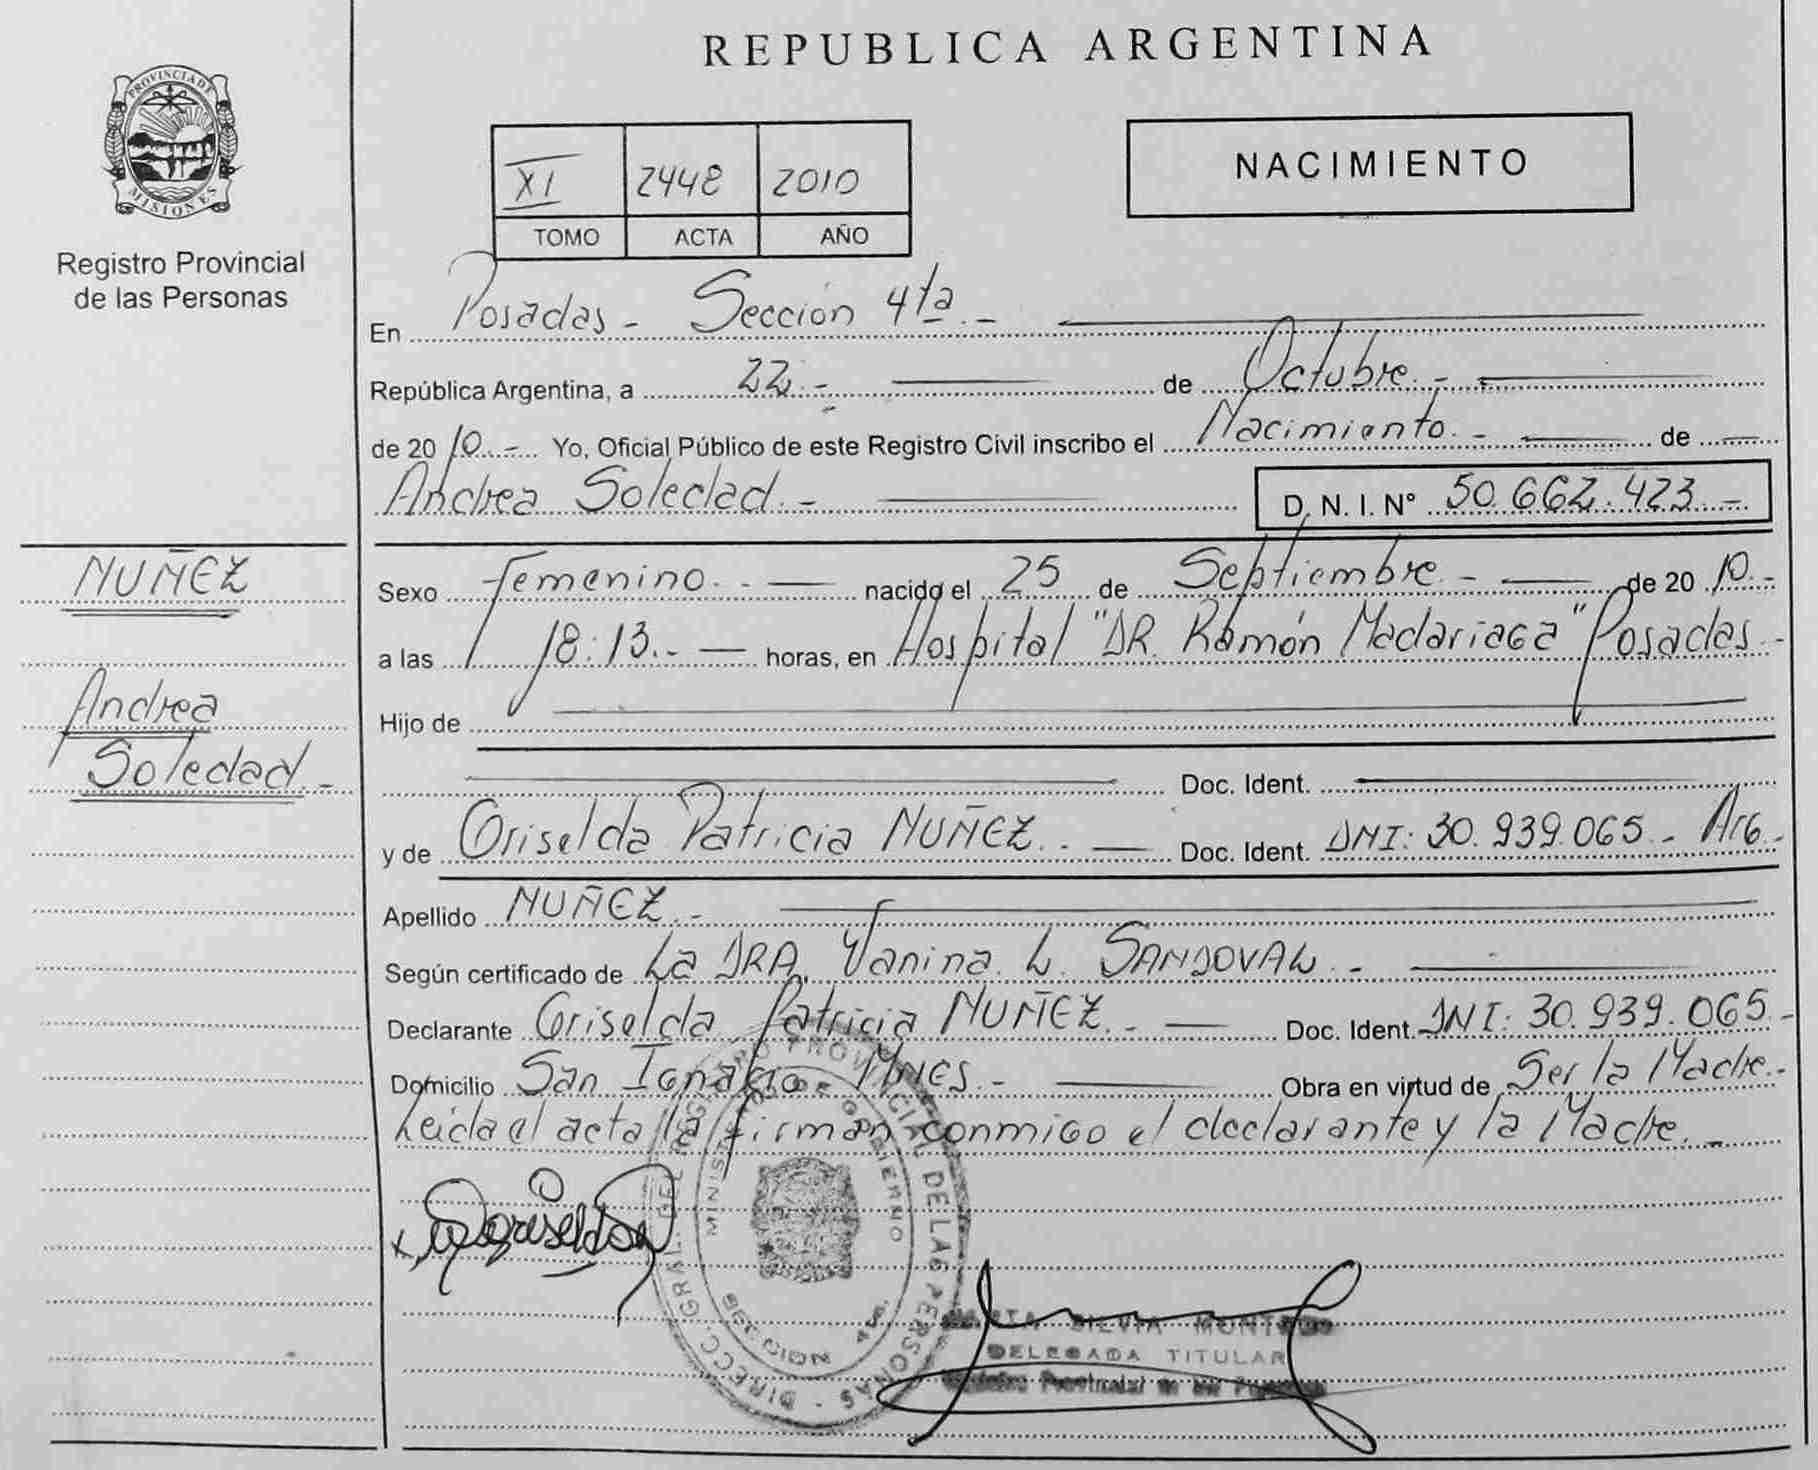 REPUBLICA ARGENTINA
PROVINCIA DE
MISIONES
Registro Provincial
de las Personas
XI 2448 2010
TOMO ACTA AÑO
NACIMIENTO
En Posadas - Sección 4ta.-
República Argentina, a 22.- de Octubre.-
de 2010.- Yo, Oficial Público de este Registro Civil inscribo el Nacimiento.- de
Andrea Soledad.- D. N. I. N° 50.662.423.-
NUÑEZ
Andrea
Soledad.-
Sexo Femenino.- nacido el 25 de Septiembre.- de 2010.-
a las 18:13.- horas, en Hospital "DR. Ramón Madariaga" Posadas.-
Hijo de
Doc. Ident.
y de Griselda Patricia NUÑEZ.- Doc. Ident. DNI: 30.939.065.- Arg.-
Apellido NUÑEZ.-
Según certificado de La DRA. Vanina L. SANDOVAL.-
Declarante Griselda Patricia NUÑEZ.- Doc. Ident. DNI: 30.939.065.-
Domicilio San Ignacio Mnes.- Obra en virtud de Ser la Madre.-
Leida el acta la firman conmigo el declarante y la Madre.-
DIRECC. GRAL. DEL REGISTRO PROVINCIAL DE LAS PERSONAS
MINISTERIO DE GOBIERNO
SILVIA
DELEGADA TITULAR
Provincial